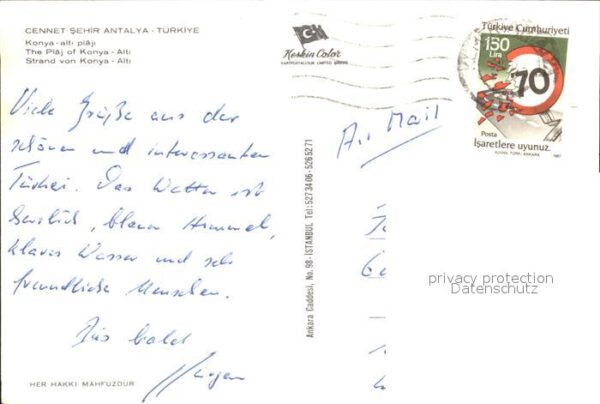 CENNET ŞEHİR ANTALYA - TÜRKİYE
Konya-altı plâjı
The Plâj of Konya - Altı
Strand von Konya - Altı
Viele Grüße aus der
schönen und interessanten
Türkei. Das Wetter ist
herrlich, blauer Himmel,
klares Wasser und sehr
freundliche Menschen.
Bis bald
Jürgen
HER HAKKI MAHFUZDUR
Keskin Color
KARTPOSTALCILIK LIMITED ŞİRKETİ
Ankara Caddesi, No. 98 - İSTANBUL Tel: 5273406-5265271
Türkiye Cumhuriyeti
150
Lira
70
Posta
İşaretlere uyunuz.
1987
Air Mail
privacy protection
Datenschutz